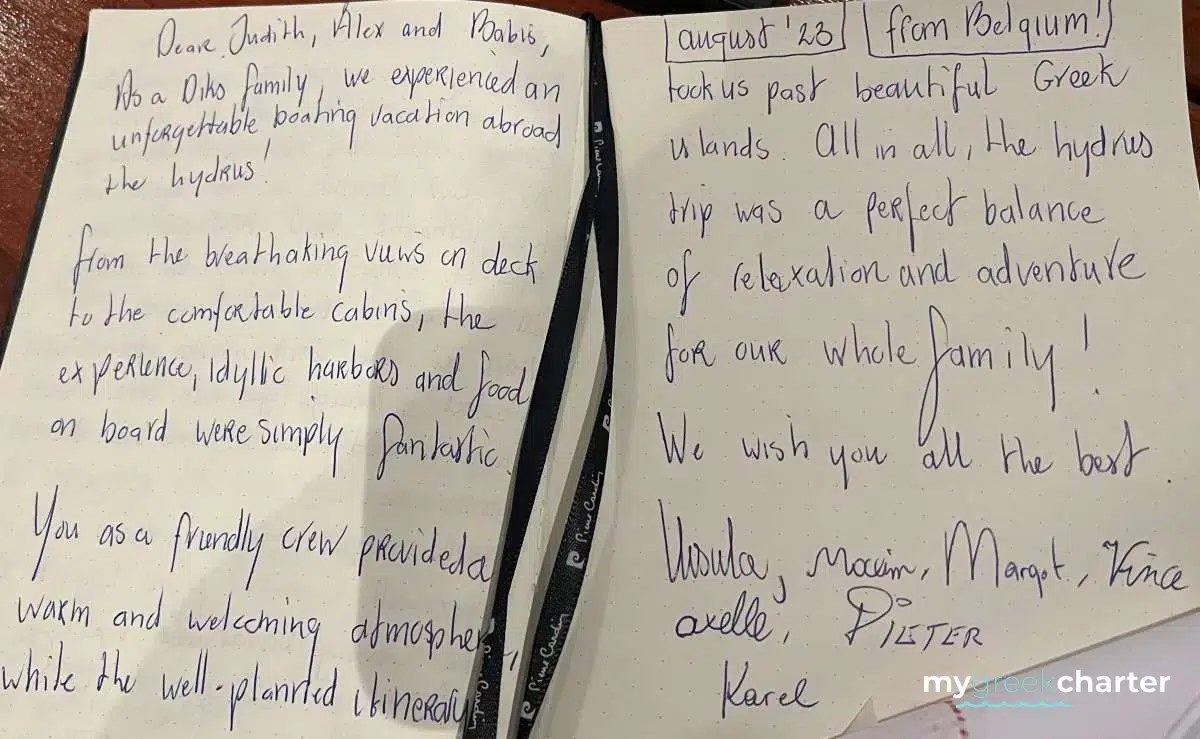 Deare Judith, Alex and Babis,
As a Diks family, we experienced an
unforgettable boating vacation abroad
the hydrus!
from the breathaking views on deck
to the comfortable cabins, the
experience, idyllic harbors and food
on board were simply fantastic.
You as a friendly crew provided a
warm and welcoming atmospher
while the well-planned itinerary
august '23 from Belgium!
took us past beautiful Greek
islands. All in all, the hydrus
trip was a perfect balance
of relaxation and adventure
for our whole family!
We wish you all the best.
Ursula, Maxim, Margot, Vince
axelle, PIETER
Karel
Pierre Cardin
Pierre Cardin
Pierre Cardin
mygreekcharter